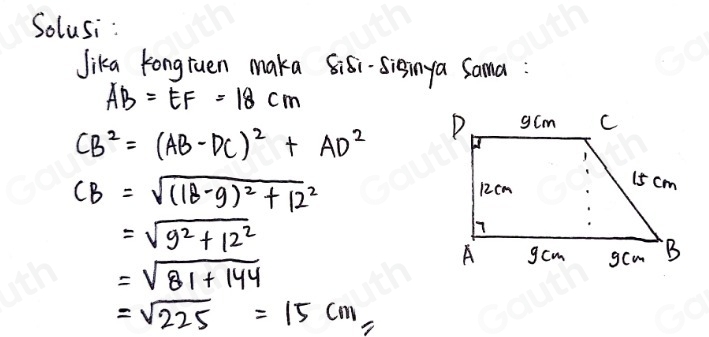 Solusi :
Jika kongruen maka sisi-sisinya sama :
AB = EF = 18 cm
CB² = (AB - DC)² + AD²
CB = √(18-9)² + 12²
= √9² + 12²
= √81 + 144
= √225 = 15 cm
D 9 cm C
12 cm 15 cm
A 9 cm 9 cm B
Gauth